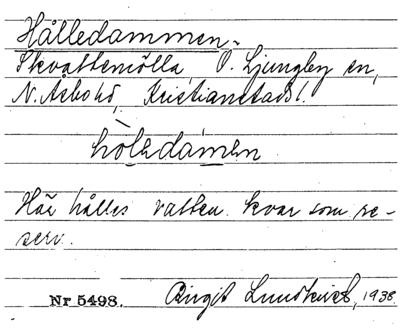 Hålledammen.
Skvattemölla, Ö. Ljungby sn,
N. Åsbo hd, Kristianstads l.
hòlədámen
Här hålles vatten kvar som re-
serv.
Nr 5498. Birgit Lundkvist, 1938.